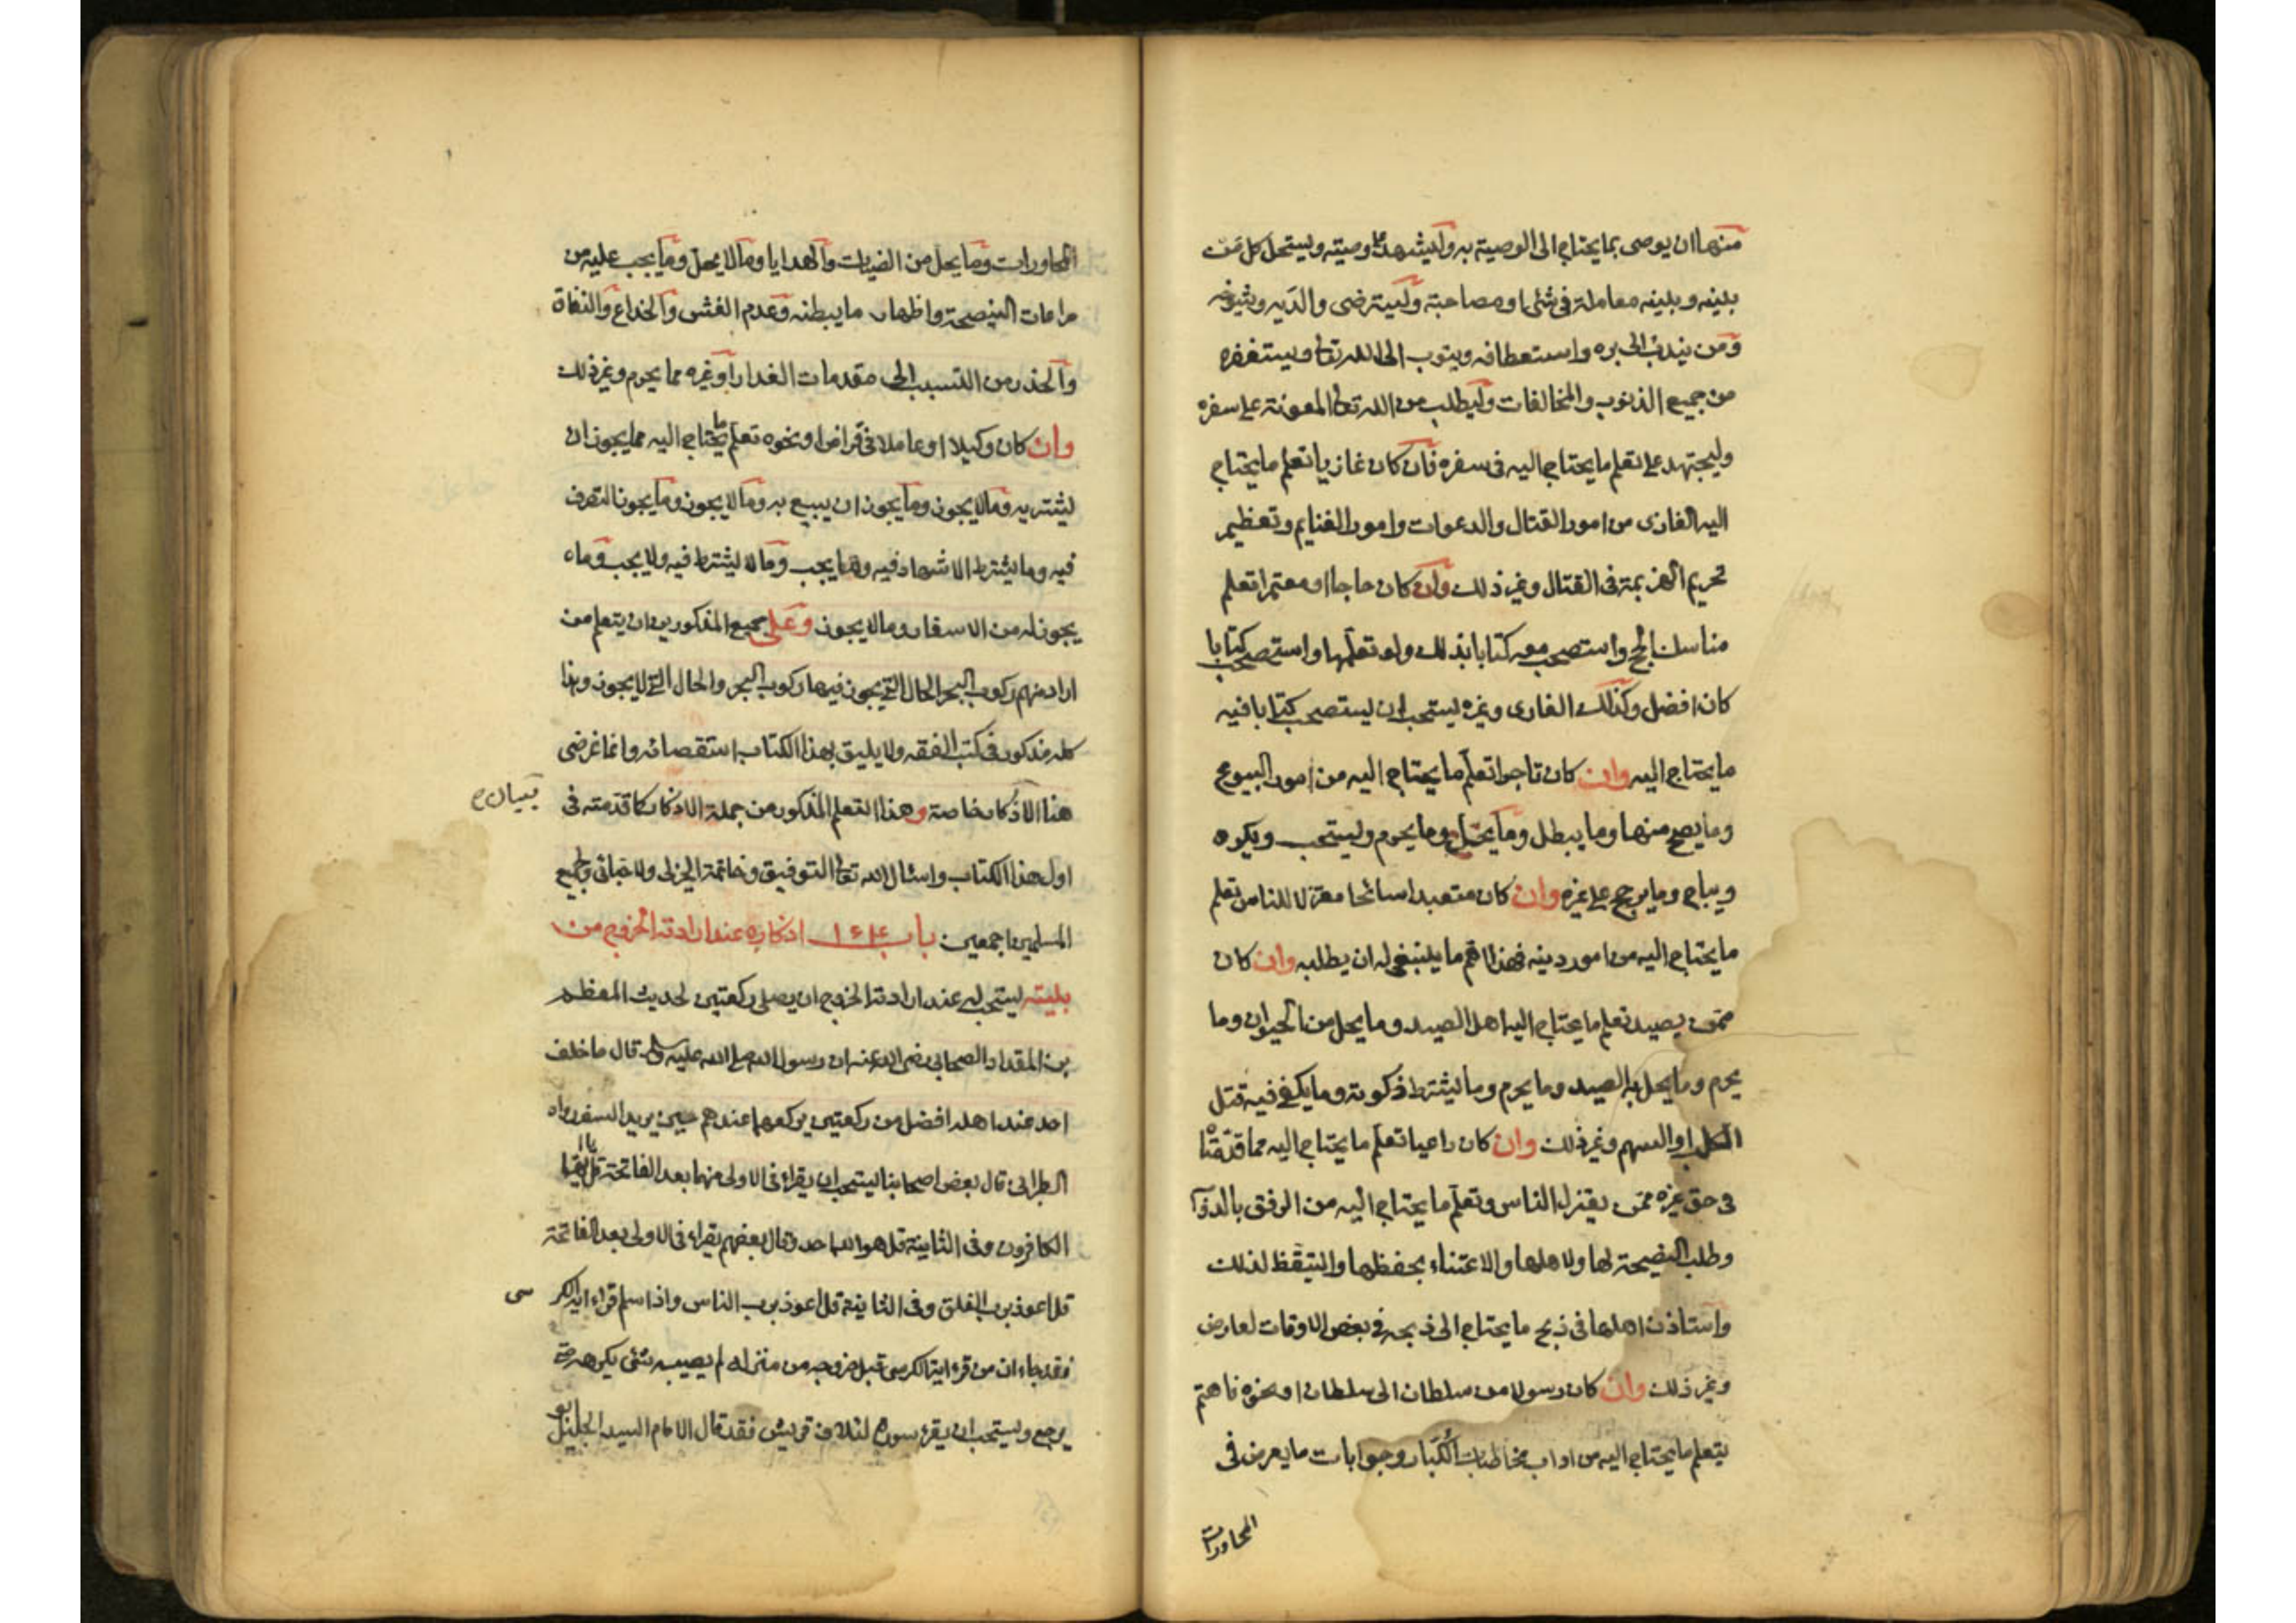 منها ان يوصى بما يحتاج الى الوصية به وليشهد على وصيته ويستحل كل من
بينه وبينه معاملة فى شئ او مصاحبة وليسترضى والديه وشيوخه
ومن يندب الى بره واستعطافه ويتوب الى الله تعا ويستغفره
من جميع الذنوب والمخالفات وليطلب من الله تعا المعونة على سفره
وليجتهد على تعلم ما يحتاج اليه فى سفره فان كان غازيا تعلم ما يحتاج
اليه الغازى من امور القتال والدعوات وامور الغنايم وتعظيم
تحريم الهزيمة فى القتال وغير ذلك وان كان حاجا او معتمرا تعلم
مناسك الحج واستصحب معه كتابا بذلك ولو تعلمها واستصحب كتابا
كان افضل وكذلك الغازى وغيره يستحب ان يستصحب كتابا فيه
ما يحتاج اليه وان كان تاجرا تعلم ما يحتاج اليه من امور البيوع
وما يصح منها وما يبطل وما يحل وما يحرم ويستحب ويكره
ويباح وما يرجح على غيره وان كان متعبدا سائحا معتزلا للناس تعلم
ما يحتاج اليه من امور دينه فهذا اهم ما ينبغى له ان يطلبه وان كان
ممن يصيد تعلم ما يحتاج اليه اهل الصيد وما يحل من الحيوان وما
يحرم وما يحل به الصيد وما يحرم وما يشترط ذكوته وما يكفى فيه قتل
الكلب او السهم وغير ذلك وان كان راعيا تعلم ما يحتاج اليه مما قدمنا
فى حق غيره ممن يعتزل الناس وتعلم ما يحتاج اليه من الرفق بالدوآ
وطلب النصيحة لها ولاهلها والاعتناء بحفظها والتيقظ لذلك
واستاذن اهلها فى ذبح ما يحتاج الى ذبحه فى بعض الاوقات لعارض
وغير ذلك وان كان رسولا من سلطان الى سلطان او نحوه فاهتم
يتعلم ما يحتاج اليه من اداب مخاطبات الكبار وجوابات ما يعرض فى
المحاورات
المحاورات وما يحل من الضيافات والهدايا وما لا يحل وما يجب عليه من
مراعات النيصحة واظهار ما يبطنه وعدم الغش والخداع والنفاق
والحذر من التسبب الى مقدمات الغدر او غيره مما يحرم وغير ذلك
وان كان وكيلا او عاملا فى قراض او نحوه تعلم ما يحتاج اليه مما يجوز ان
يشتريه وما لا يجوز وما يجوز ان يبيع به وما لا يجوز وما يجوز التصرف
فيه وما يشترط الاشهاد فيه وما يجب وما لا يشترط فيه ولا يجب وما
يجوز له من الاسفار وما لا يجوز وعلى جميع المذكورين ان يتعلم من
اراد منهم ركوب البحر الحال التى يجوز فيها ركوب البحر والحال التى لا يجوز وهذا
كله مذكور فى كتب الفقه ولا يليق بهذا الكتاب استقصائه وانما غرضى
بيان
هنا الاذكار خاصة وهذا التعلم المذكور من جملة الاذكار كما قدمته فى
اول هذا الكتاب واسال الله تعا التوفيق وخاتمة الخير لى ولاحبائى ولجميع
المسلمين اجمعين باب اذكاره عند ارادته الخروج من
بيته يستحب له عند ارادته الخروج ان يصلى ركعتين لحديث المعظم
بن المقداد الصحابى رضى الله عنه ان رسول الله صلى الله عليه وسلم قال ما خلف
احد عند اهله افضل من ركعتين يركعهما عندهم حين يريد السفر رواه
الطبرانى قال بعض اصحابنا يستحب ان يقراء فى الاولى منهما بعد الفاتحة قل يا ايها
الكافرون وفى الثانية قل هو الله احد وقال بعضهم يقراء فى الاولى بعد الفاتحة
قل اعوذ برب الفلق وفى الثانية قل اعوذ برب الناس واذا سلم قراء اية الكر سى
فقد جاء ان من قراء اية الكرسى قبل خروجه من منزله لم يصيبه شئ يكرهه حتى
يرجع ويستحب ان يقرء سورة لئلاف قريش فقد قال الامام السيد الجليل ابو